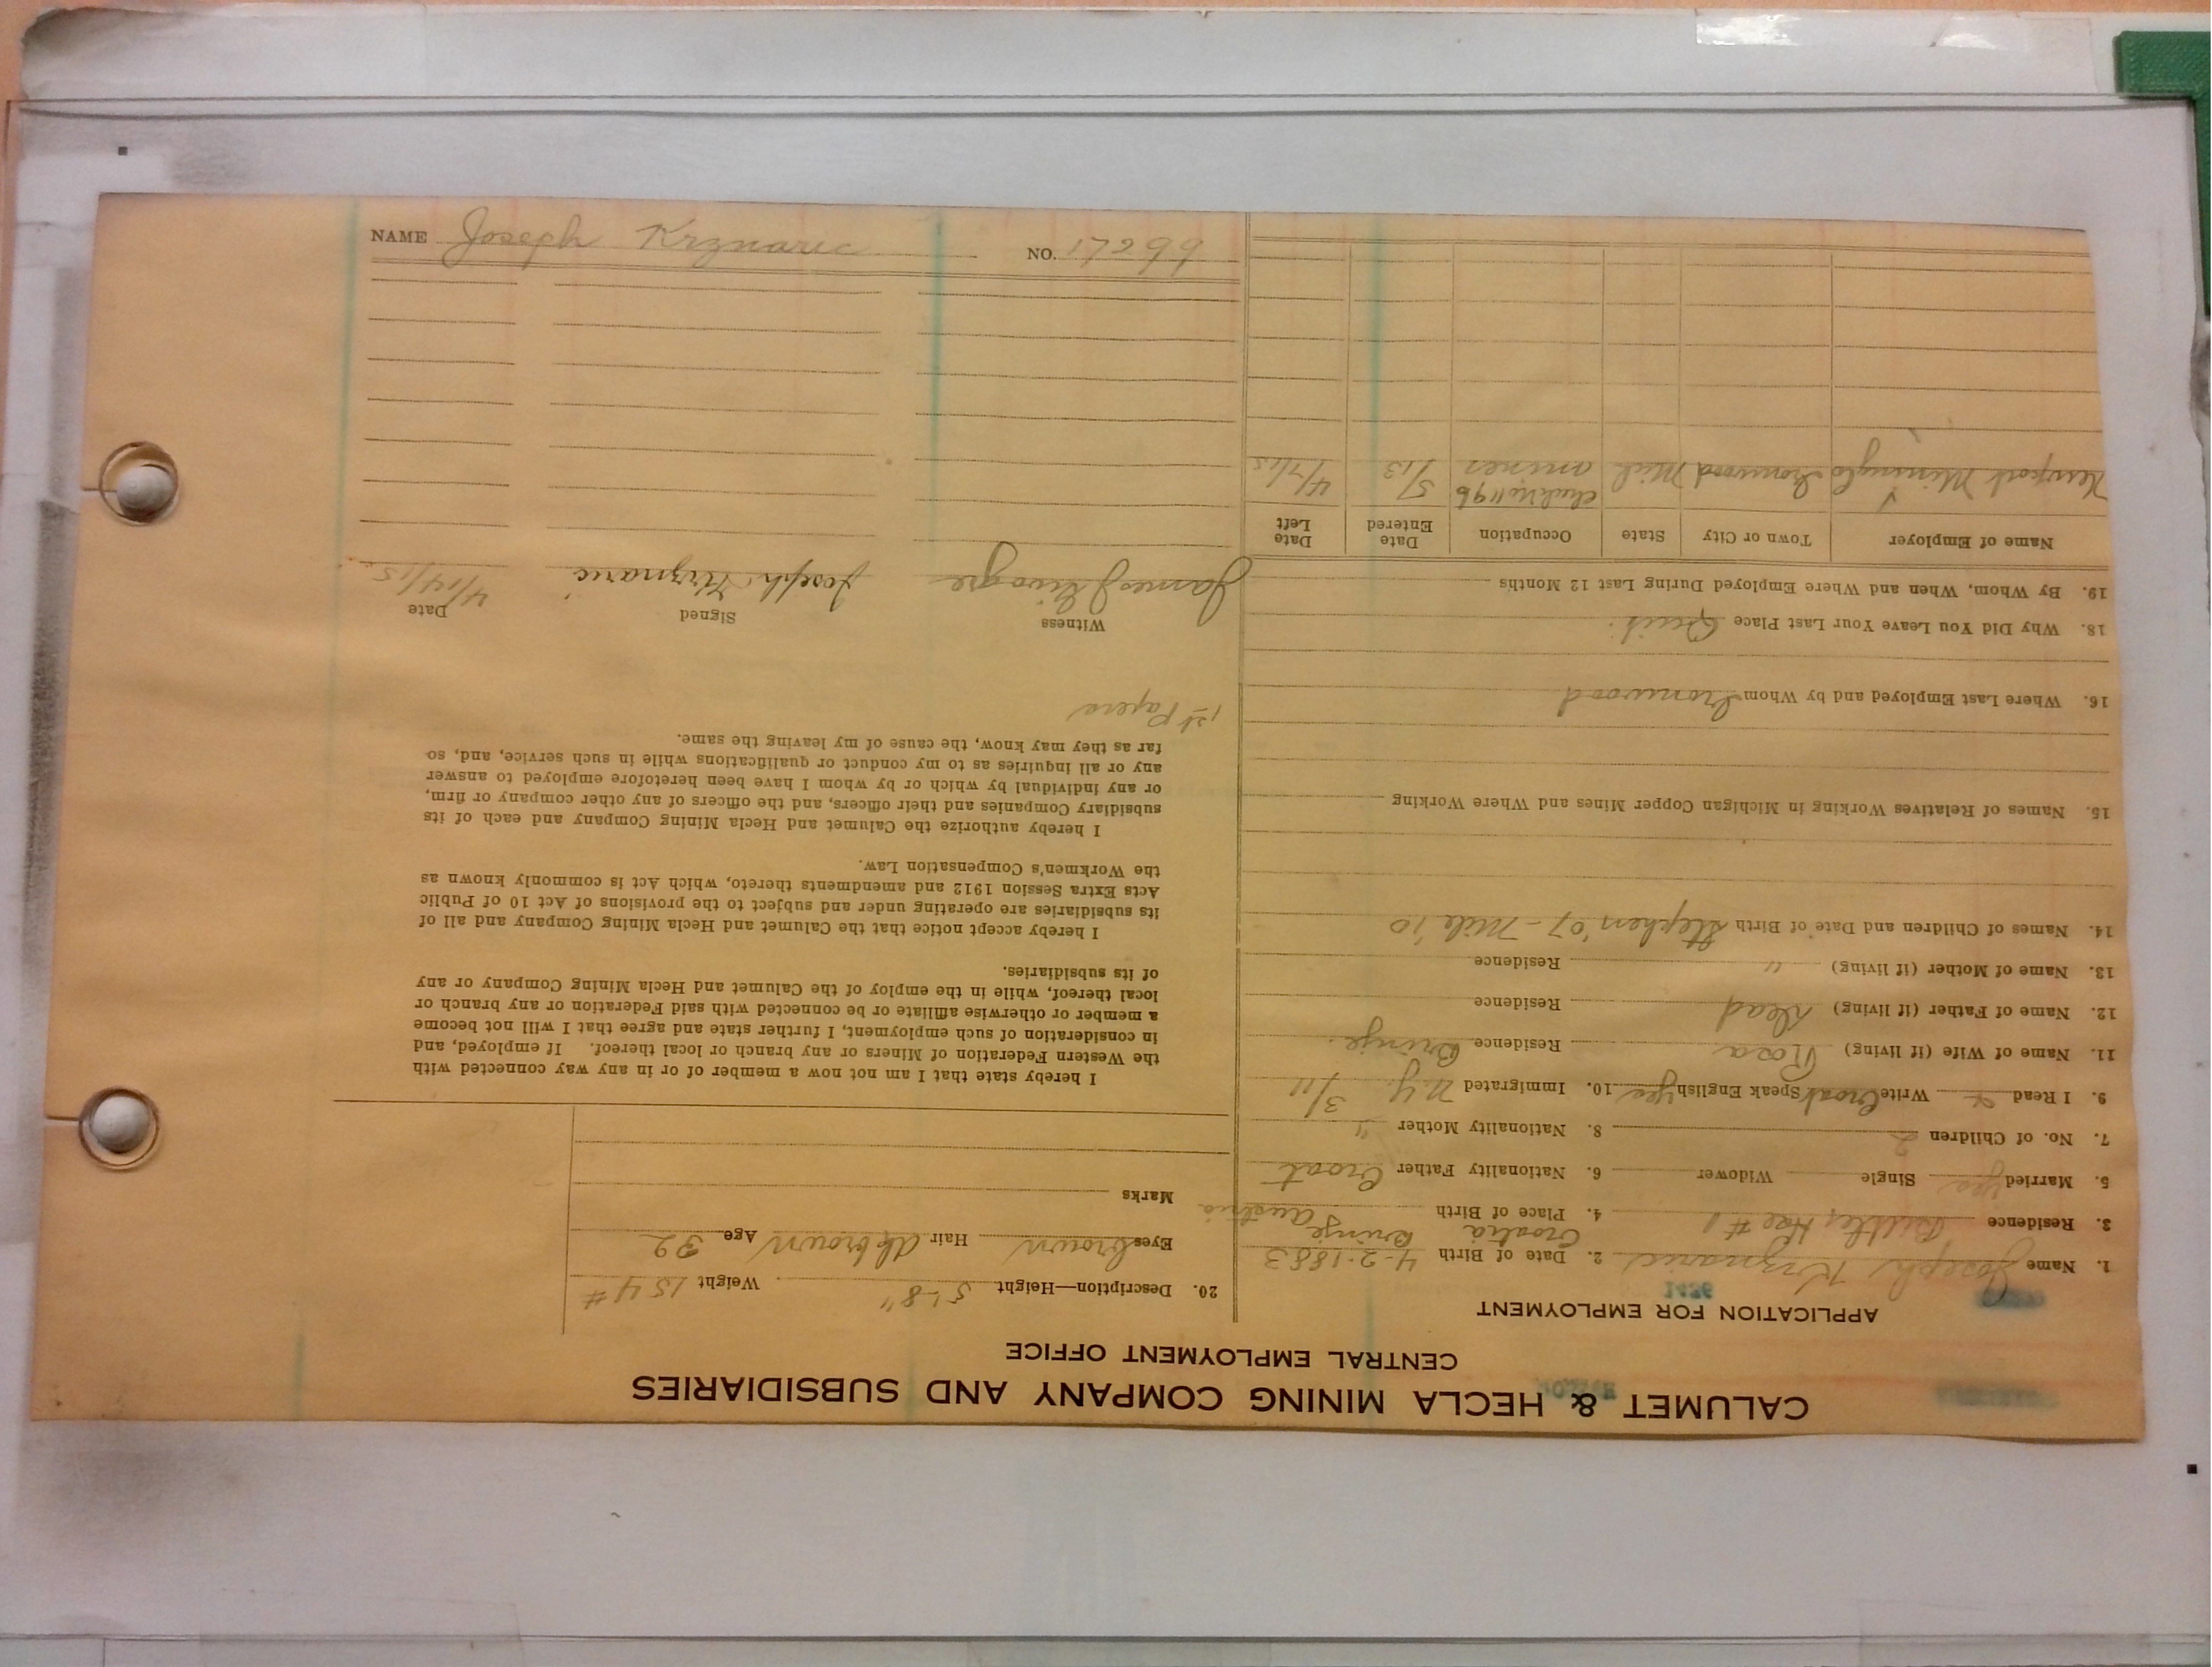 CALUMET & HECLA MINING COMPANY AND SUBSIDIARIES
CENTRAL EMPLOYMENT OFFICE
APPLICATION FOR EMPLOYMENT
1. Name Joseph Krznaric 2. Date of Birth 4-2-1883
3. Residence Butler Hse #1 4. Place of Birth Croatia Brinje Austria
5. Married yes Single Widower 6. Nationality Father Croat
7. No. of Children 2 8. Nationality Mother "
9. I Read & Write Croat Speak English yes 10. Immigrated N.Y. 3/11
11. Name of Wife (if living) Rosa Residence Brinje
12. Name of Father (if living) Dead Residence
13. Name of Mother (if living) " Residence
14. Names of Children and Date of Birth Stephen '07 - Mile '10
15. Names of Relatives Working in Michigan Copper Mines and Where Working
16. Where Last Employed and by Whom Ironwood
18. Why Did You Leave Your Last Place Quit.
19. By Whom, When and Where Employed During Last 12 Months
Name of Employer Town or City State Occupation Date Entered Date Left
Check No 1196
Newport Mining Co Ironwood Mich miner 5/13 4/7/15
20. Description—Height 5'-8" Weight 154#
Eyes brown Hair dk brown Age 32
Marks
I hereby state that I am not now a member of or in any way connected with
the Western Federation of Miners or any branch or local thereof. If employed, and
in consideration of such employment, I further state and agree that I will not become
a member or otherwise affiliate or be connected with said Federation or any branch or
local thereof, while in the employ of the Calumet and Hecla Mining Company or any
of its subsidiaries.
I hereby accept notice that the Calumet and Hecla Mining Company and all of
its subsidiaries are operating under and subject to the provisions of Act 10 of Public
Acts Extra Session 1912 and amendments thereto, which Act is commonly known as
the Workmen's Compensation Law.
I hereby authorize the Calumet and Hecla Mining Company and each of its
subsidiary Companies and their officers, and the officers of any other company or firm,
or any individual by which or by whom I have been heretofore employed to answer
any or all inquiries as to my conduct or qualifications while in such service, and, so
far as they may know, the cause of my leaving the same.
1st Papers
Witness Signed Date
James J Joseph Krznaric 4/14/15
NAME Joseph Krznaric NO.